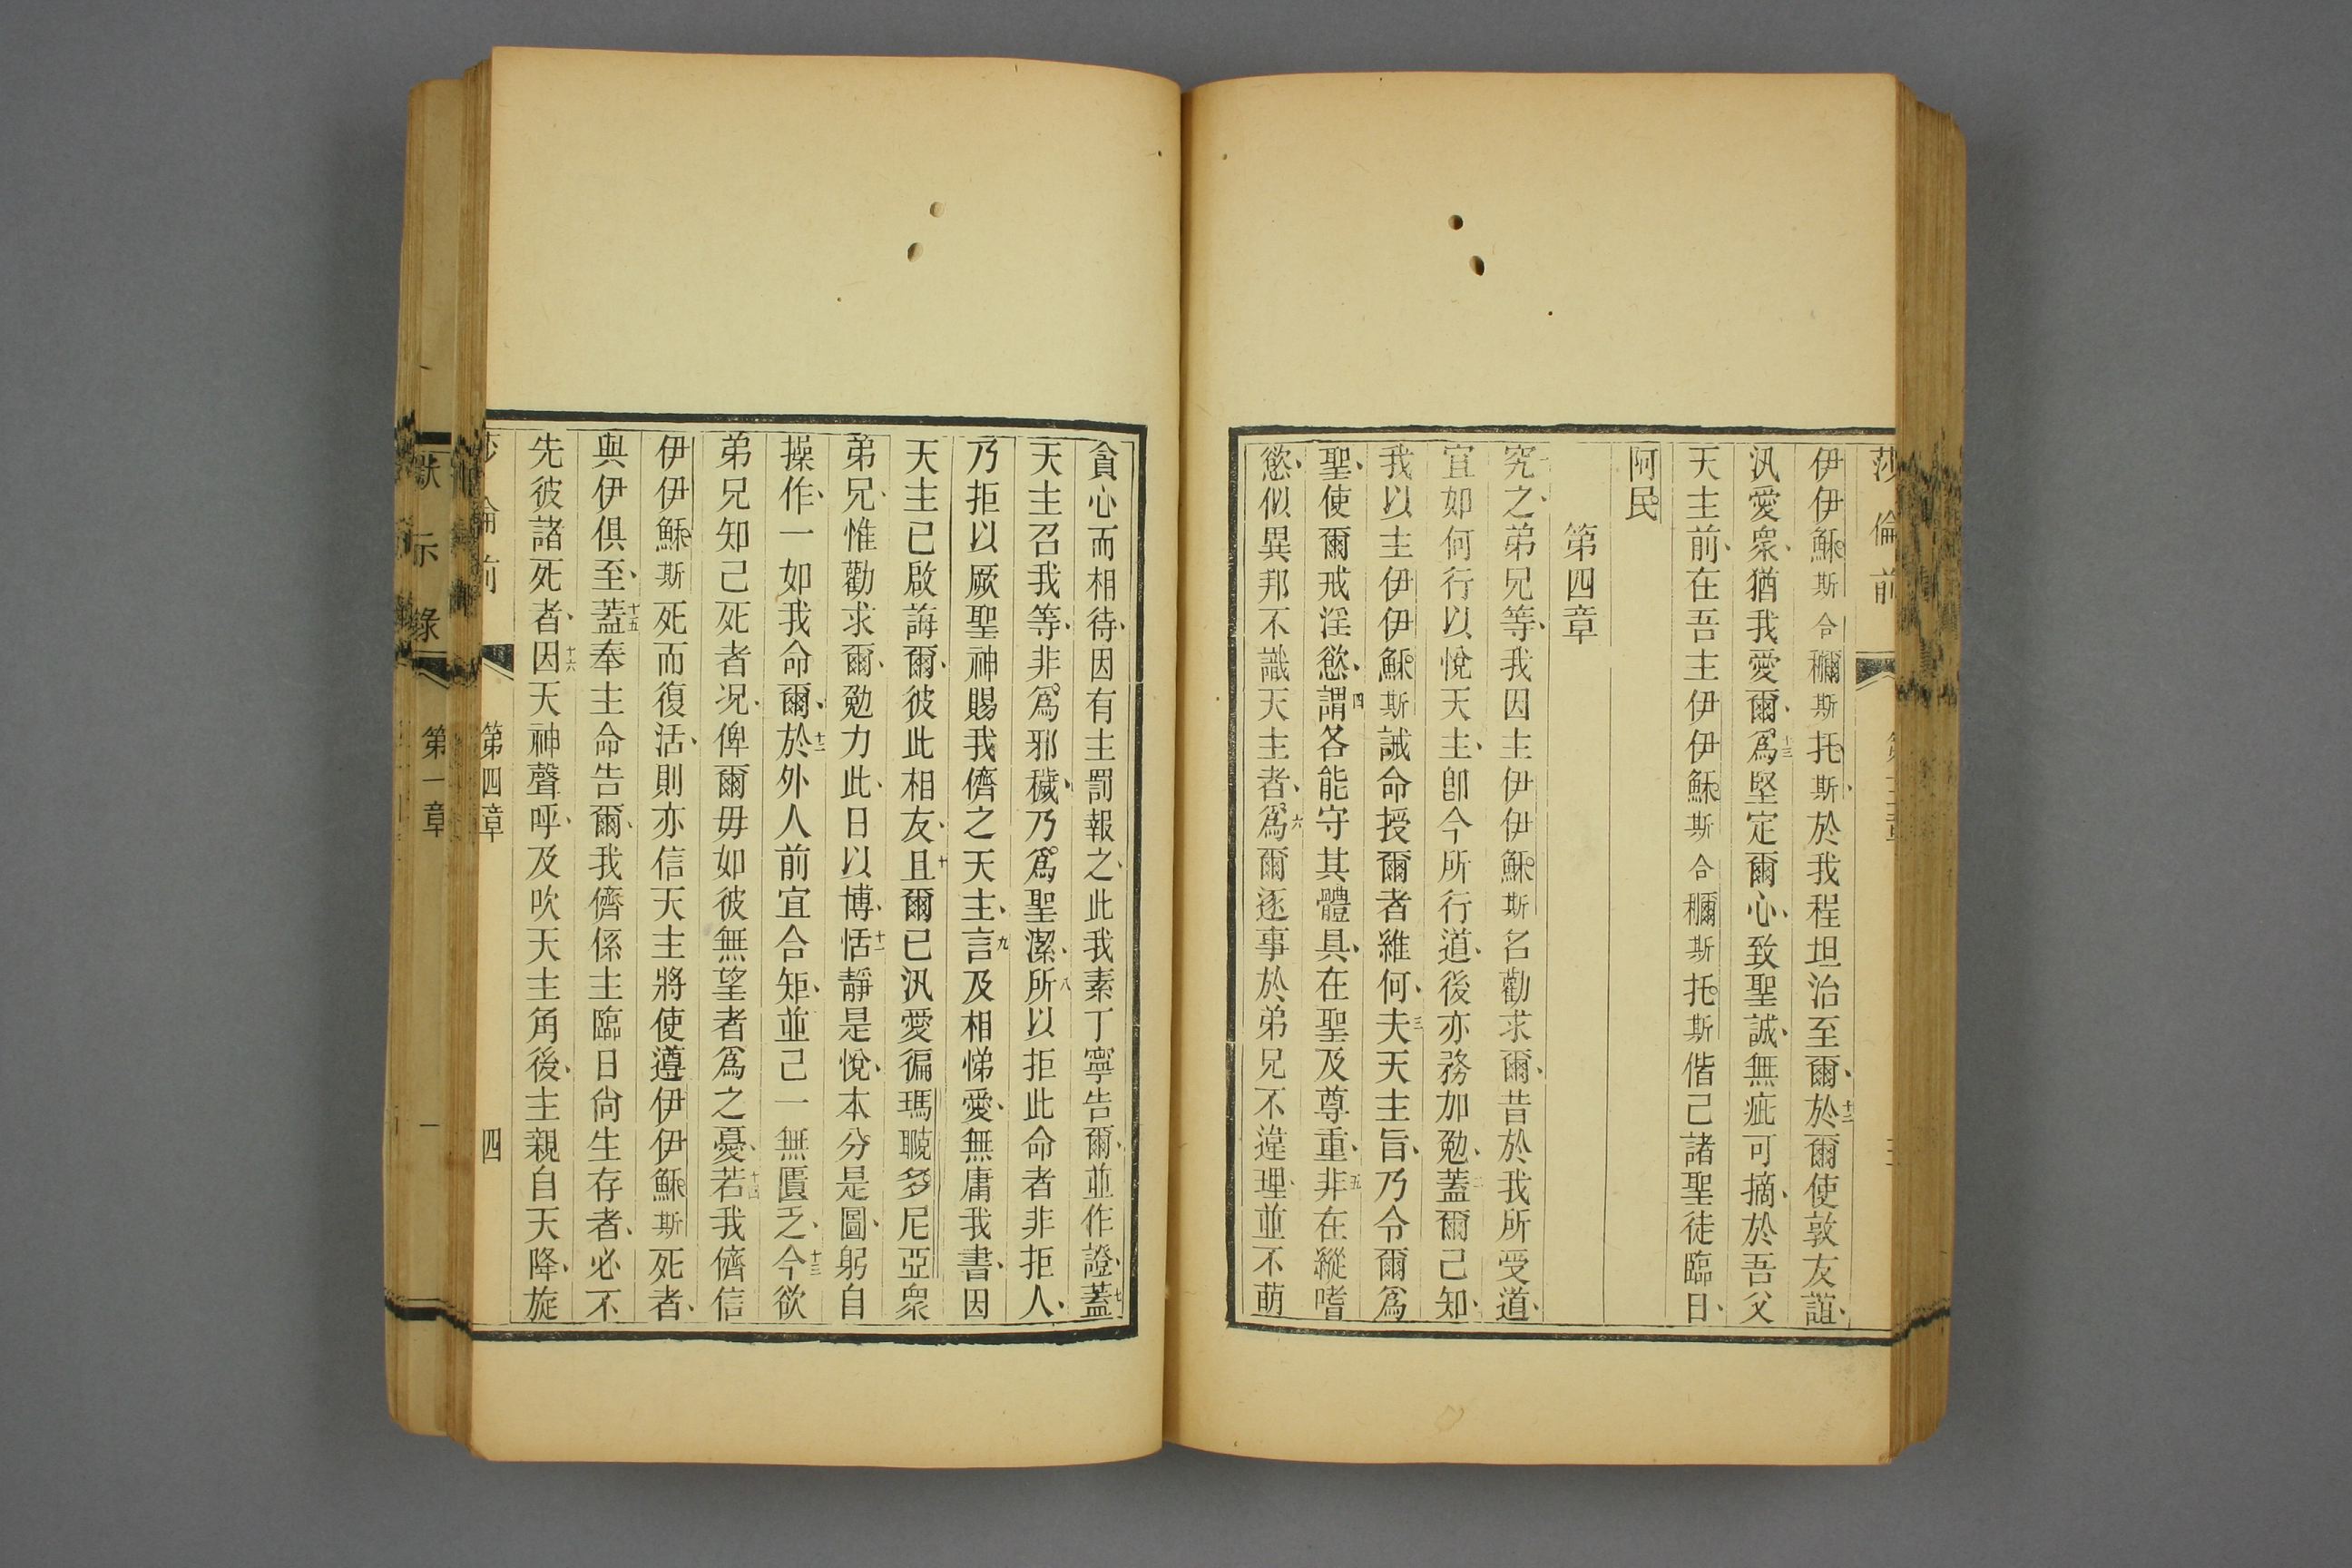 莎倫前
伊伊穌斯合穪斯托斯於我程坦治至爾、十二於爾使敦友誼、
汎愛衆、猶我愛爾、十三爲堅定爾心、致聖誠、無疵可摘、於吾父
天主前、在吾主伊伊穌斯合穪斯托斯偕己諸聖徒臨日、
阿民
第四章
一究之、弟兄等、我因主伊伊穌斯名勸求爾、昔於我所受道、
宜如何行以悅天主、卽今所行道、後亦務加勉、二蓋爾己知、
我以主伊伊穌斯誡命授爾者維何、三夫天主旨、乃令爾爲
聖、使爾戒淫慾、四謂各能守其體具、在聖及尊重、五非在縱嗜
慾、似異邦不識天主者、六爲爾逐事於弟兄不違理、並不萌
貪心而相待、因有主罰報之、此我素丁寧告爾、並作證、七蓋
天主召我等、非爲邪穢、乃爲聖潔、八所以拒此命者非拒人、
乃拒以厥聖神賜我儕之天主、九言及相悌愛、無庸我書、因
天主已啟誨爾、彼此相友、十且爾已汎愛徧瑪聭多尼亞衆
弟兄、惟勸求爾、勉力此、日以博、十一恬靜是悅、本分是圖、躬自
操作、一如我命爾、十二於外人前宜合矩、並己一無匱乏、十三今欲
弟兄知己死者况、俾爾毋如彼無望者爲之憂、十四若我儕信
伊伊穌斯死而復活、則亦信天主將使遵伊伊穌斯死者、
與伊俱至、十五蓋奉主命告爾、我儕係主臨日尙生存者、必不
先彼諸死者、十六因天神聲呼、及吹天主角後、主親自天降、旋
第四章
四
示錄
第一章
一